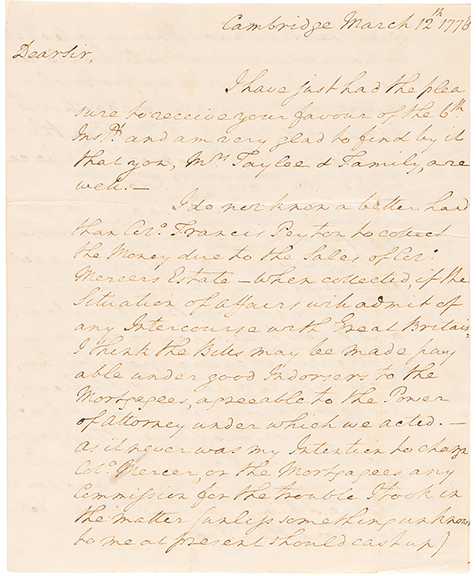 Cambridge March 12th 1776
Dear Sir,
I have just had the plea
sure to receive your favour of the 6th
Inst and am very glad to find by it
that you, Mrs Tayloe & Family, are
well.—
I do not know a better hand
than Colo. Francis Peyton to collect
the Money due to the Sales of Colo.
Mercers Estate — when collected, if the
Situation of affairs will admit of
any Intercourse with Great Britain,
I think the Bills may be made pay
able under good Indorsers to the
Mortgagees, agreeable to the Power
of attorney under which we acted.—
as it never was my Intention to charge
Colo. Mercer, or the Mortgagees any
Commission for the trouble I took in
the matter (unless something unknown
to me at present should cast up)